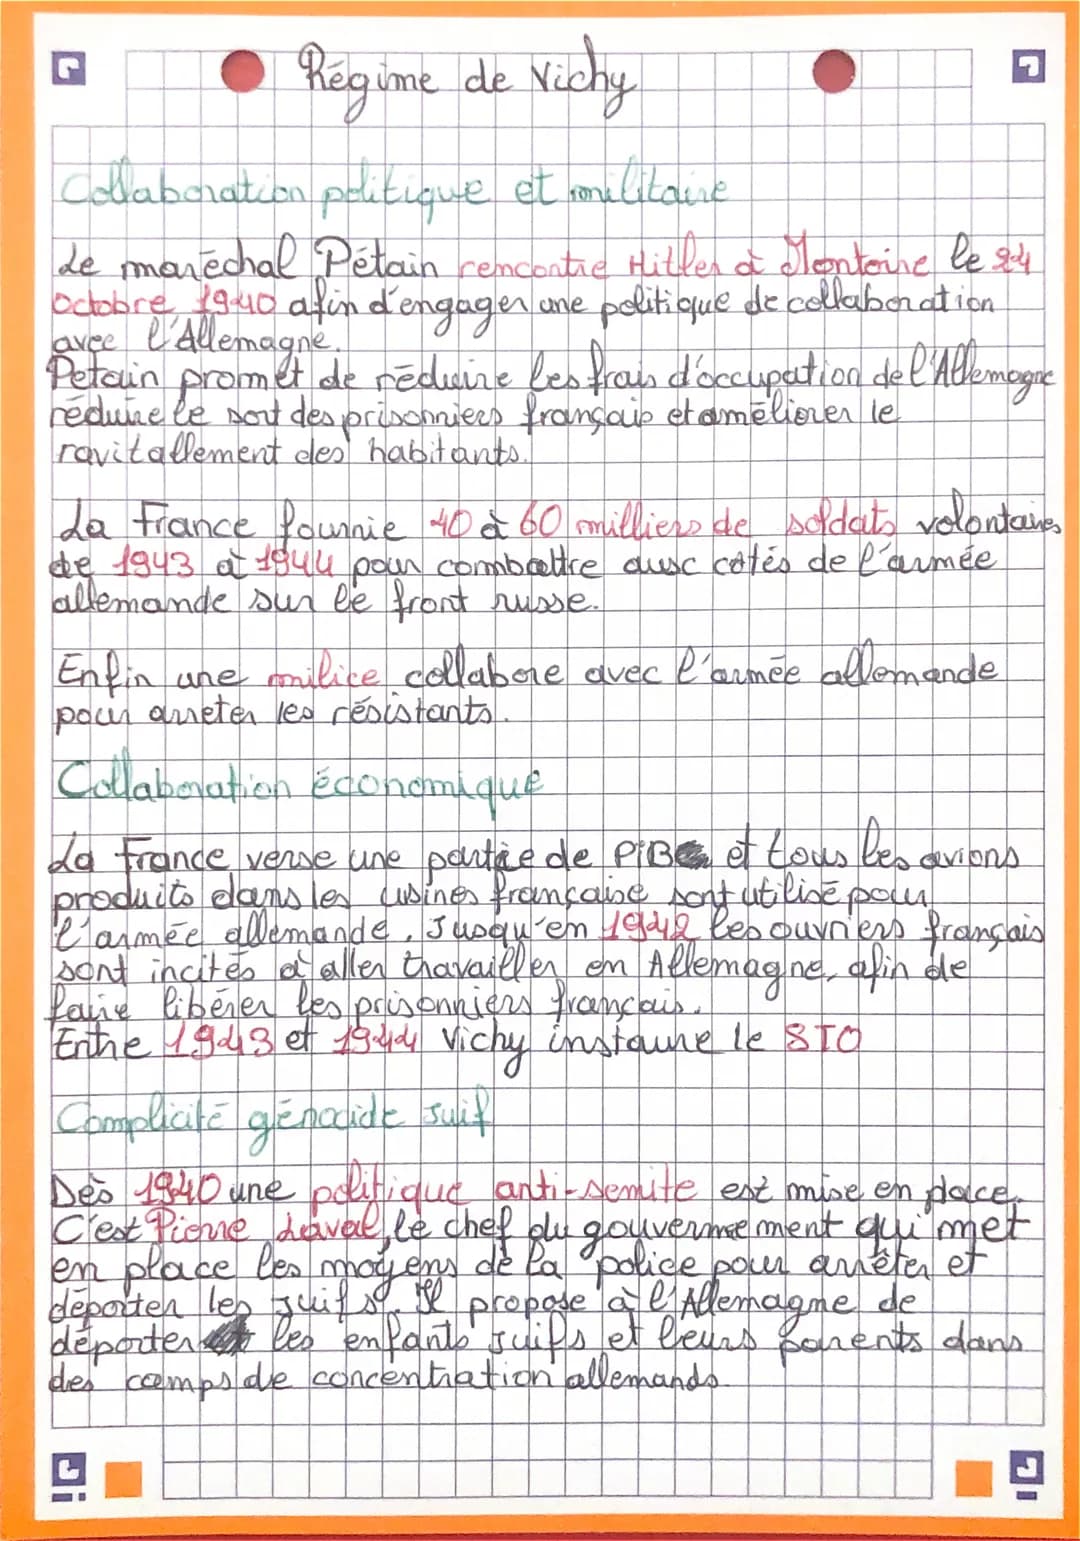 Régime de Vichy
Collaboration politique et militaire
Le maréchal Pétain rencontre Hitler à Montoire le 24
octobre 1940 afin d'engager une politique de collaboration
avec l'Allemagne.
Petain promet de réduire les frais d'occupation de l'Allemagne
réduire le sort des prisonniers français et améliorer le
ravitallement des habitants.
La France fournie 40 à 60 milliers de soldats volontaires
de 1943 à 1944 pour combattre aux cotés de l'armée
allemande sur le front russe.
Enfin une milice collabore avec l'armée allemande
pour arreter les résistants.
Collaboration économique
La France verse une partie de PIB et tous les avions
produits dans les usines française sont utilisé pour
l'armée allemande. Jusqu'en 1942 les ouvriers français
sont incités à aller travailler en Allemagne, afin de
faire libérer les prisonniers français.
Entre 1943 et 1944 Vichy instaure le STO
Complicité génocide juif
Dès 1940 une politique anti-semite est mise en place.
C'est Pierre Laval, le chef du gouvernement qui met
en place les moyens de la police pour arrêter et
déporter les juifs. Il propose à l'Allemagne de
déporter les enfants juifs et leurs parents dans
des camps de concentration allemands.